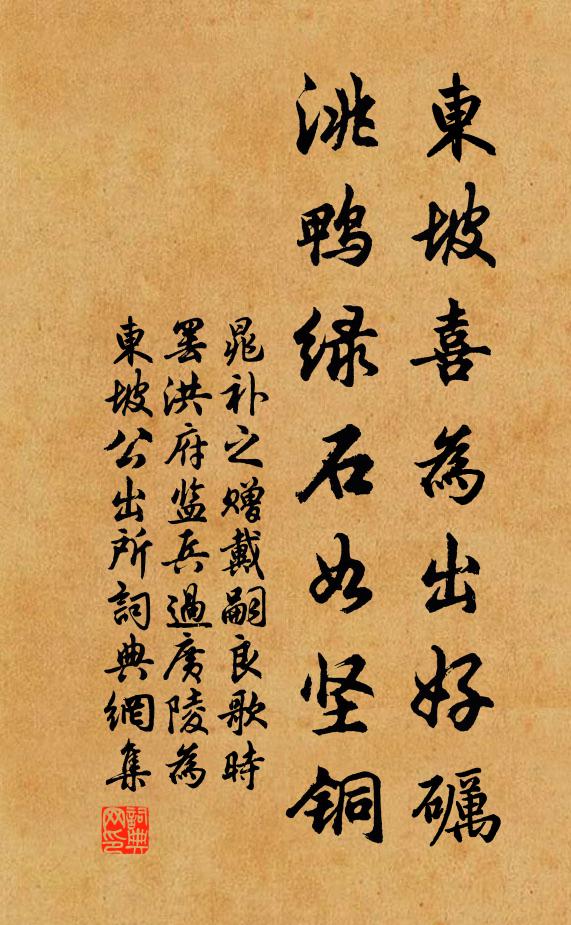 東坡喜為出好礪
洮鴨绿石如坚铜
晁补之赠戴嗣良歌時
罢洪府监兵過廣陵為
東坡公出所詞典網集
詞典网印